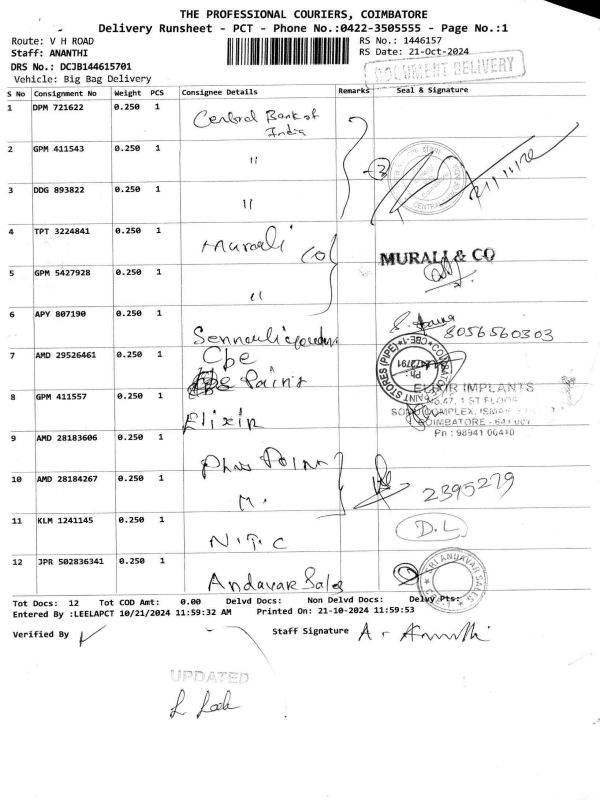 THE PROFESSIONAL COURIERS, COIMBATORE
Delivery Runsheet - PCT - Phone No.:0422-3505555 - Page No.:1
Route: V H ROAD
RS No.: 1446157
Staff: ANANTHI
RS Date: 21-Oct-2024
DRS No.: DCJB144615701
DOCUMENT DELIVERY
Vehicle: Big Bag Delivery
S No Consignment No Weight PCS Consignee Details Remarks Seal & Signature
1 DPM 721622 0.250 1 Central Bank of India
2 GPM 411543 0.250 1 "
3 DDG 893822 0.250 1 "
3
CENTRAL
4 TPT 3224841 0.250 1 Murali Co
MURALI & CO
5 GPM 5427928 0.250 1 "
6 APY 807190 0.250 1
8056560303
7 AMD 29526461 0.250 1 Cbe Paint
STORES (PIPE) CBE-1
8 GPM 411557 0.250 1 Elixir
ELIXIR IMPLANTS
No.47, 1 ST FLOOR
COMPLEX,
COIMBATORE - 641 001
Ph : 98941 00410
9 AMD 28183606 0.250 1 Plus Point
10 AMD 28184267 0.250 1 M.
2395279
11 KLM 1241145 0.250 1 N.T.C
D.L
12 JPR 502836341 0.250 1 Andavar Sales
SRI ANDAVAR SALES
Tot Docs: 12 Tot COD Amt: 0.00 Delvd Docs: Non Delvd Docs: Delvy Pts:
Entered By :LEELAPCT 10/21/2024 11:59:32 AM Printed On: 21-10-2024 11:59:53
Verified By
Staff Signature
UPDATED